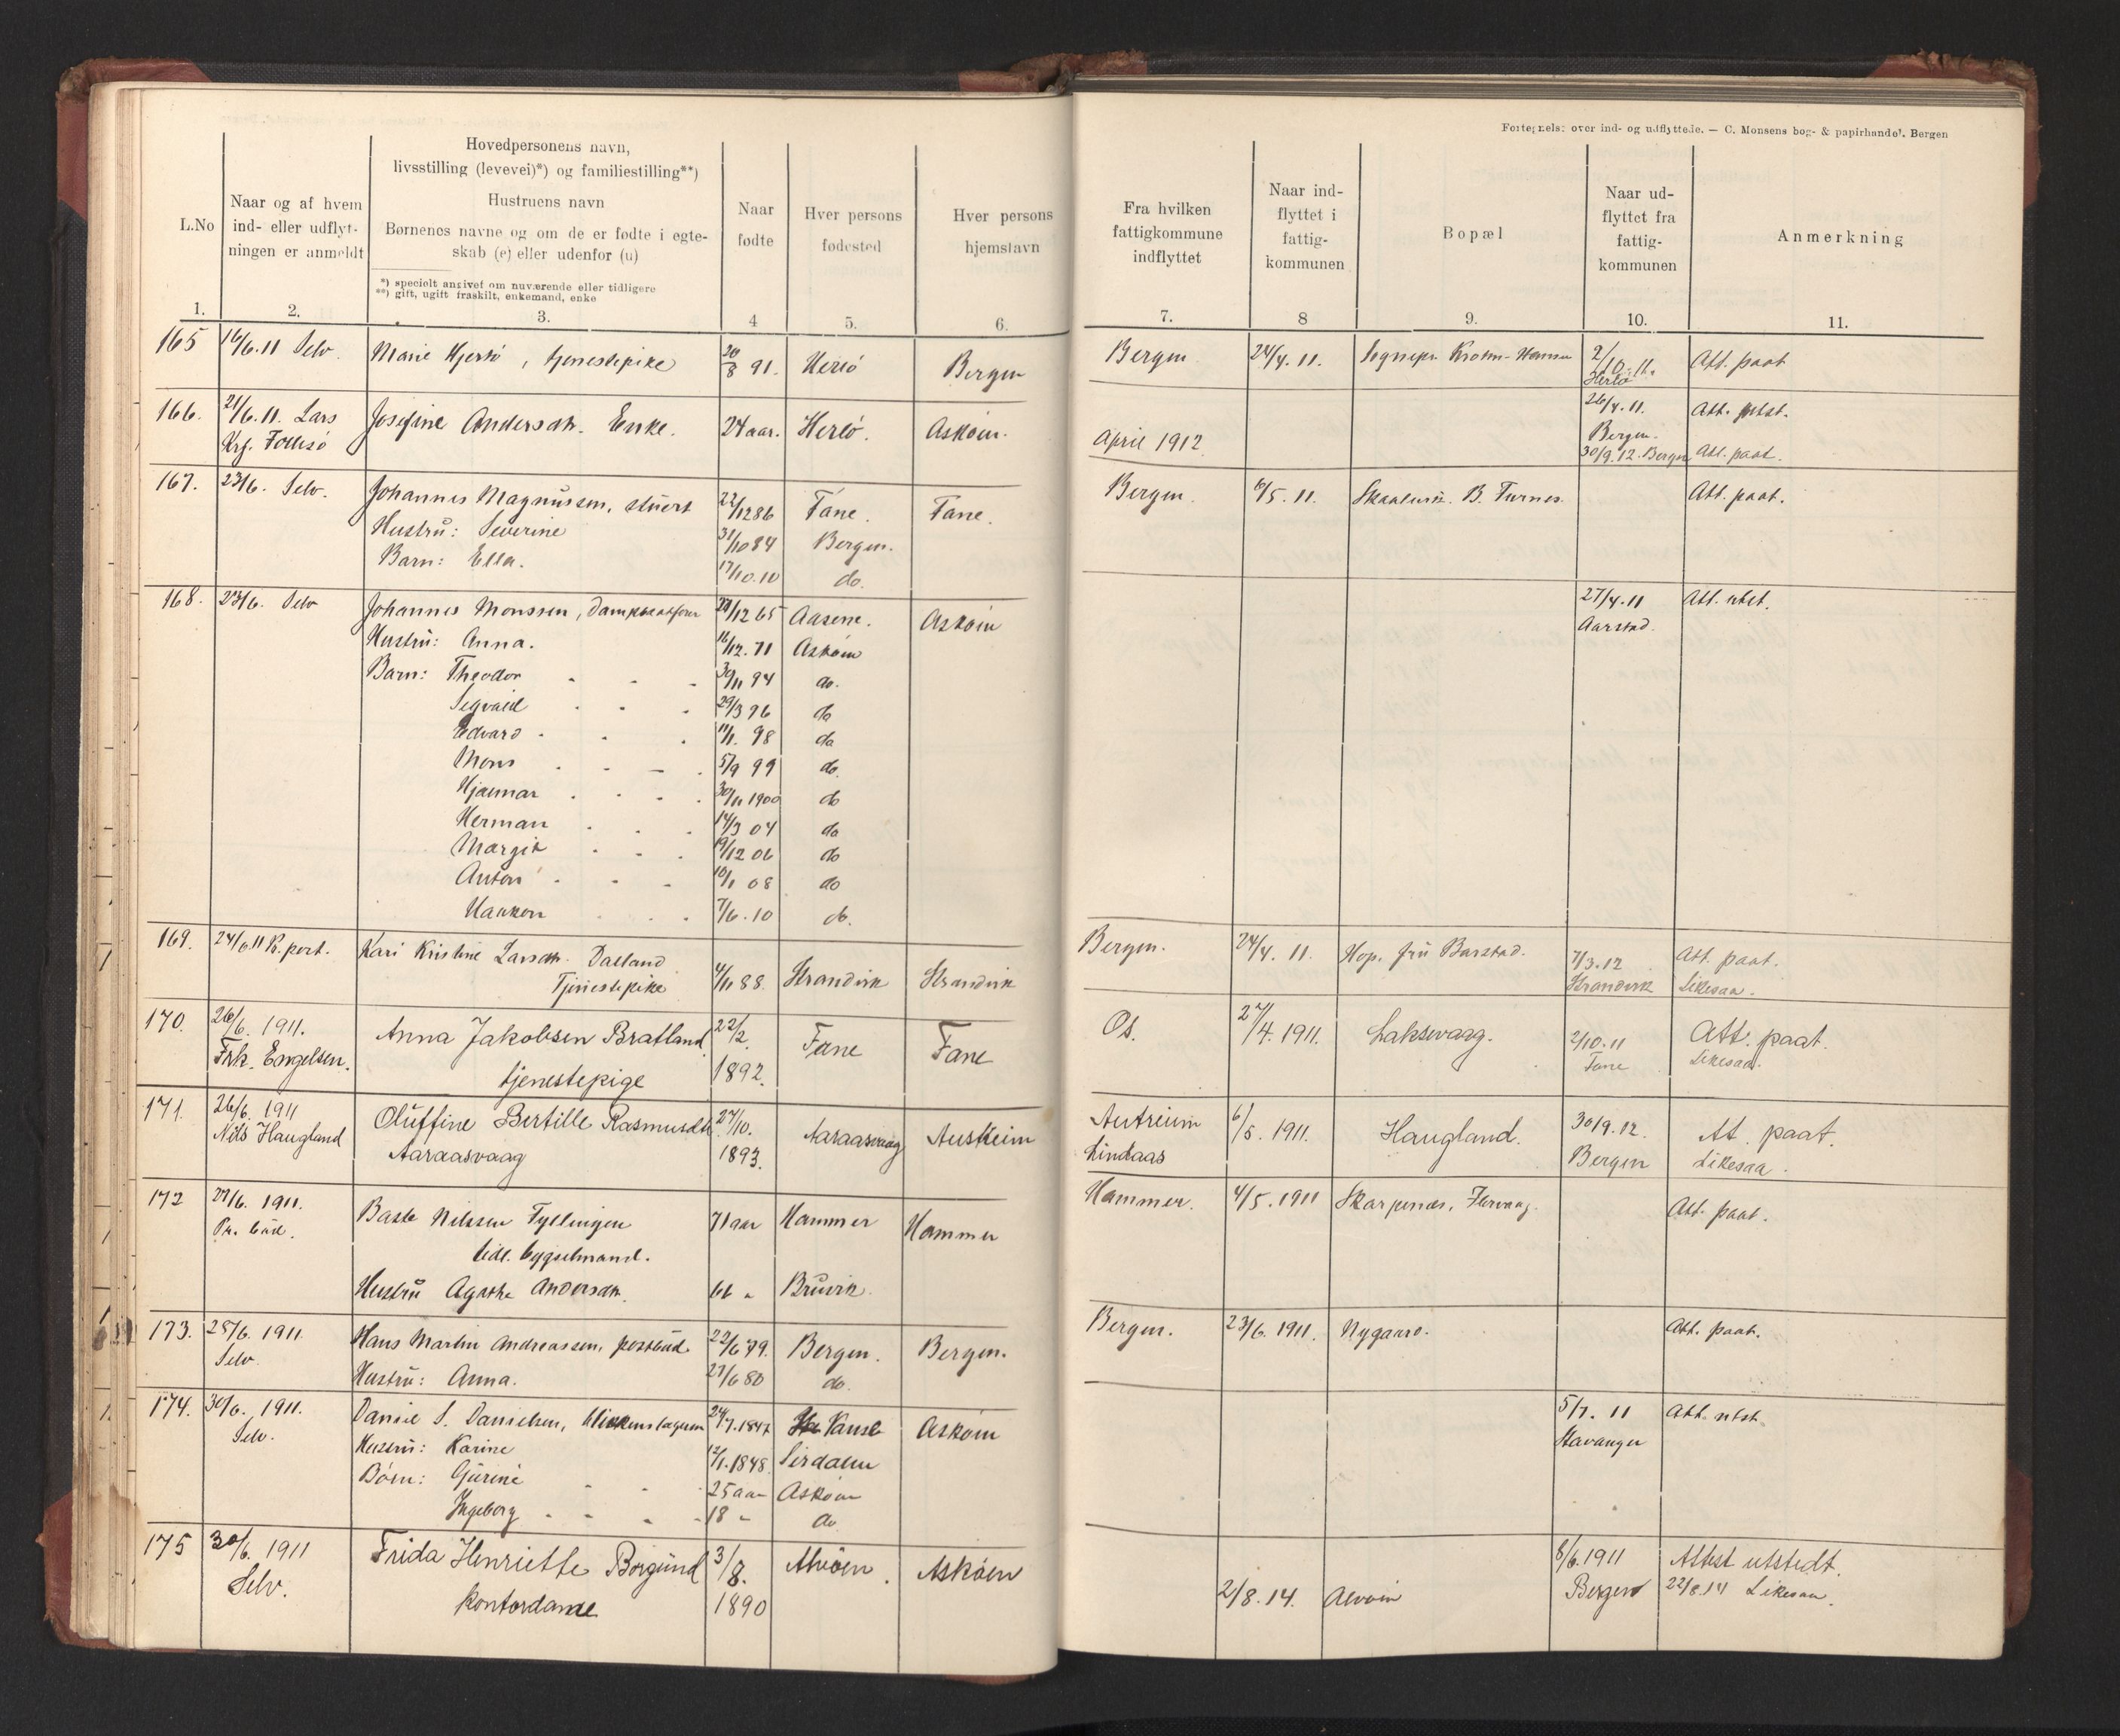 Fortegnelse over ind- og udflyttede. — C. Monsens bog- & papirhandel. Bergen
L.No
Naar og af hvem
ind- eller udflyt-
ningen er anmeldt
Hovedpersonens navn,
livsstilling (levevei)*) og familiestilling**)
Hustruens navn
Børnenes navne og om de er fødte i egte-
skab (e) eller udenfor (u)
*) specielt angivet om nuværende eller tidligere
**) gift, ugift fraskilt, enkemand, enke
Naar
fødte
Hver persons
fødested
Hver persons
hjemstavn
Fra hvilken
fattigkommune
indflyttet
Naar ind-
flyttet i
fattig-
kommunen
Bopæl
Naar ud-
flyttet fra
fattig-
kommunen
Anmerkning
1. 2. 3. 4 5. 6. 7. 8 9. 10. 11.
165 16/6.11 Selv. Marie Hjertö, tjenestepike 20/8 91. Herlö Bergen Bergen 24/4.11. Sognepr. Krohn-Hansen 2/10.11. Att. paat
Herlö
166. 21/6.11. Lars Josefine Andersdtr. Enke. 24 aar. Herlö. Asköin. 26/4.11. Att. utst.
Krf. Follesö Bergen.
April 1912 30/9.12. Bergen Att. paat.
167. 23/6. Selv. Johannes Magnussen, stuert 22/12 86 Fane. Fane. Bergen. 6/5.11. B. Turnes. Att. paat.
Hustru: Severine 31/10 84 Bergen.
Barn: Ella. 17/10.10 do.
168. 23/6. Selv Johannes Monssen, Dampbaatförer 28/12 65 Aasene. Asköin 27/4.11 Att. utst.
Hustru: Anna. 16/12.71 Asköin Aarstad.
Barn: Theodor 30/11 94 do.
Sigvald 29/3 96 do
Edvard 11/1. 98 do
Mons 5/9 99 do.
Hjalmar 30/11 1900 do
Herman 14/3 04 do
Margit 19/12 06 do
Anton 10/1 08 do
Haakon 7/6.10 do.
169. 24/6 11 R. port. Kari Kristine Larsdtr. Dalland 4/11 88. Strandvik Strandvik Bergen. 24/4.11. Hop. fru Barstad. 7/3.12 Att. paat.
Tjenestepike Strandvik Likesaa.
170. 26/6. 1911. Anna Jakobsen Bratland 22/2. Fane Fane Os. 27/4. 1911. Laksevaag. 2/10.11 Att. paat.
Frk. Engelsen. tjenestepige 1892. Fane Likesaa.
171. 26/6. 1911 Oluffine Bertille Rasmusdtr. 27/10. Aaraasvaag Austreim Autreium 6/5. 1911. Haugland. 30/9.12. At. paat.
Nils Haugland Aaraasvaag 1893. Lindaas Bergen Likesaa.
172 27/6. 1911. Baste Nilssen Tyllingen 71 aar Hammer Hammer Hammer. 4/5. 1911 Skarpenes, Florvaag. Att. paat.
Pr. bud. tidl. bygselmand.
Hustru Agathe Andersdtr. Bruvik.
173. 28/6. 1911 Hans Martin Andreassen, postbud. 22/6 79. Bergen. Bergen. Bergen. 23/6. 1911. Nygaard. Att. paat.
Selv. Hustru: Anna. 27/6 80 do.
174. 30/6. 1911. Daniel S. Danielsen, blikkenslageren 24/7.1847 Asköin 5/7. 11 Att. utst.
Selv. Hustru: Karine 12/1.1848. Sirdalen Stavanger
Börn: Gurine 25 aar Asköin
Ingeborg 18 " do
175 30/6. 1911 Frida Henriette Borgund 3/8. Alvöen. Asköen 8/6.1911 Attest utstedt.
Selv. kontordame 1890 2/8.14. Alvöin Bergen 22/8.14 Likesaa.